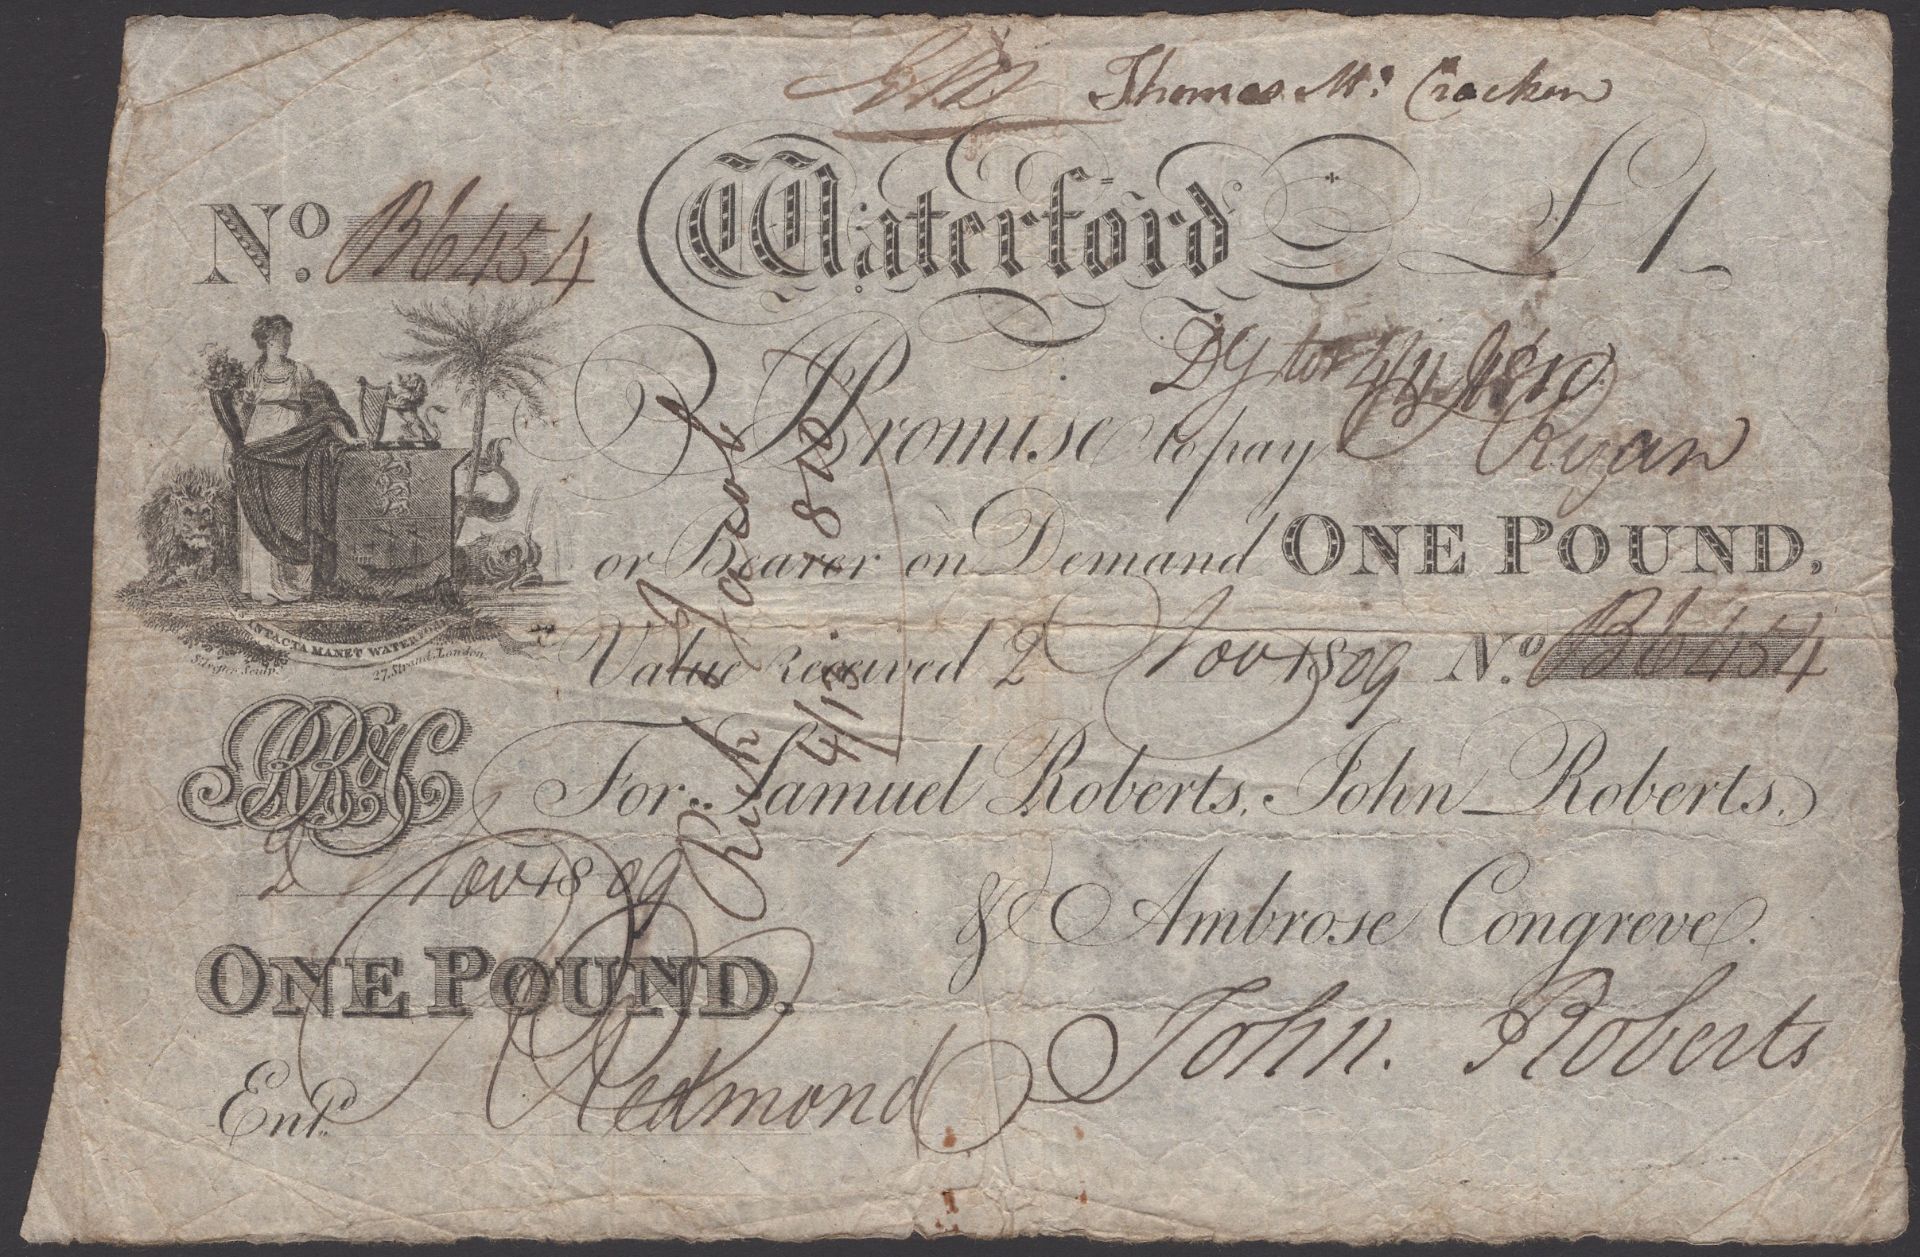 Thomas Mc. Cracken
No. B6454 Waterford £1
I Promise to pay Ryan
or Bearer on Demand ONE POUND,
Value Received 2 Nov 1809 No. B6454
INTACTA MANET WATERFOR
27, Strand, London.
RR&C
For Samuel Roberts, John Roberts,
2 Nov 1809
& Ambrose Congreve.
ONE POUND.
John Roberts
Entd. Redmond
Richd Jacob
4/13 1810